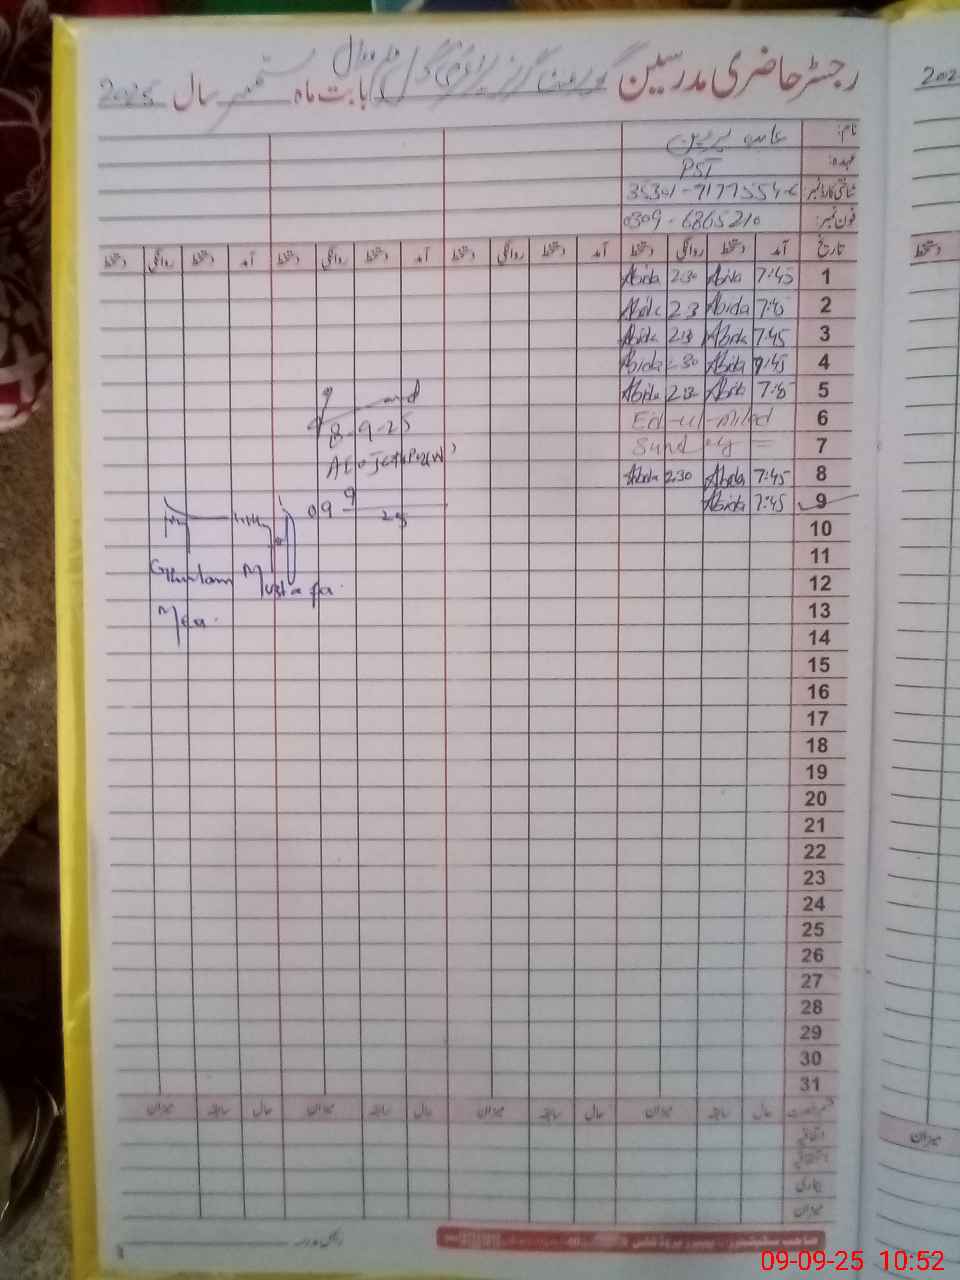 رجسٹر حاضری مدرسین گورنمنٹ گرلز پرائمری سکول بابت ماہ ستمبر سال 2025
نام: عابدہ پروین
عہدہ: PST
شناختی کارڈ نمبر 35301-7177554-6
فون نمبر: 0309-6865210
تاریخ آمد دستخط روانگی دستخط آمد دستخط روانگی دستخط آمد دستخط روانگی دستخط آمد دستخط روانگی دستخط
1 7:45 Abida 2:30 Abida
2 7:45 Abida 2:3 Abida
3 7:45 Abida 2:3 Abida
4 7:45 Abida 2:30 Abida
5 7:45 Abida 2:3 Abida
6 Eid-ul-Milad
7 Sunday
8 7:45 Abida 2:30 Abida
9 7:45 Abida
10
11
12
13
14
15
16
17
18
19
20
21
22
23
24
25
26
27
28
29
30
31
8-9-25
09 9 25
Ghulam Mustafa
Mea
قسم رخصت حال سابقہ میزان حال سابقہ میزان حال سابقہ میزان حال سابقہ میزان
اتفاقیہ
بیماری
میزان
میزان
202
دستخط
09-09-25 10:52